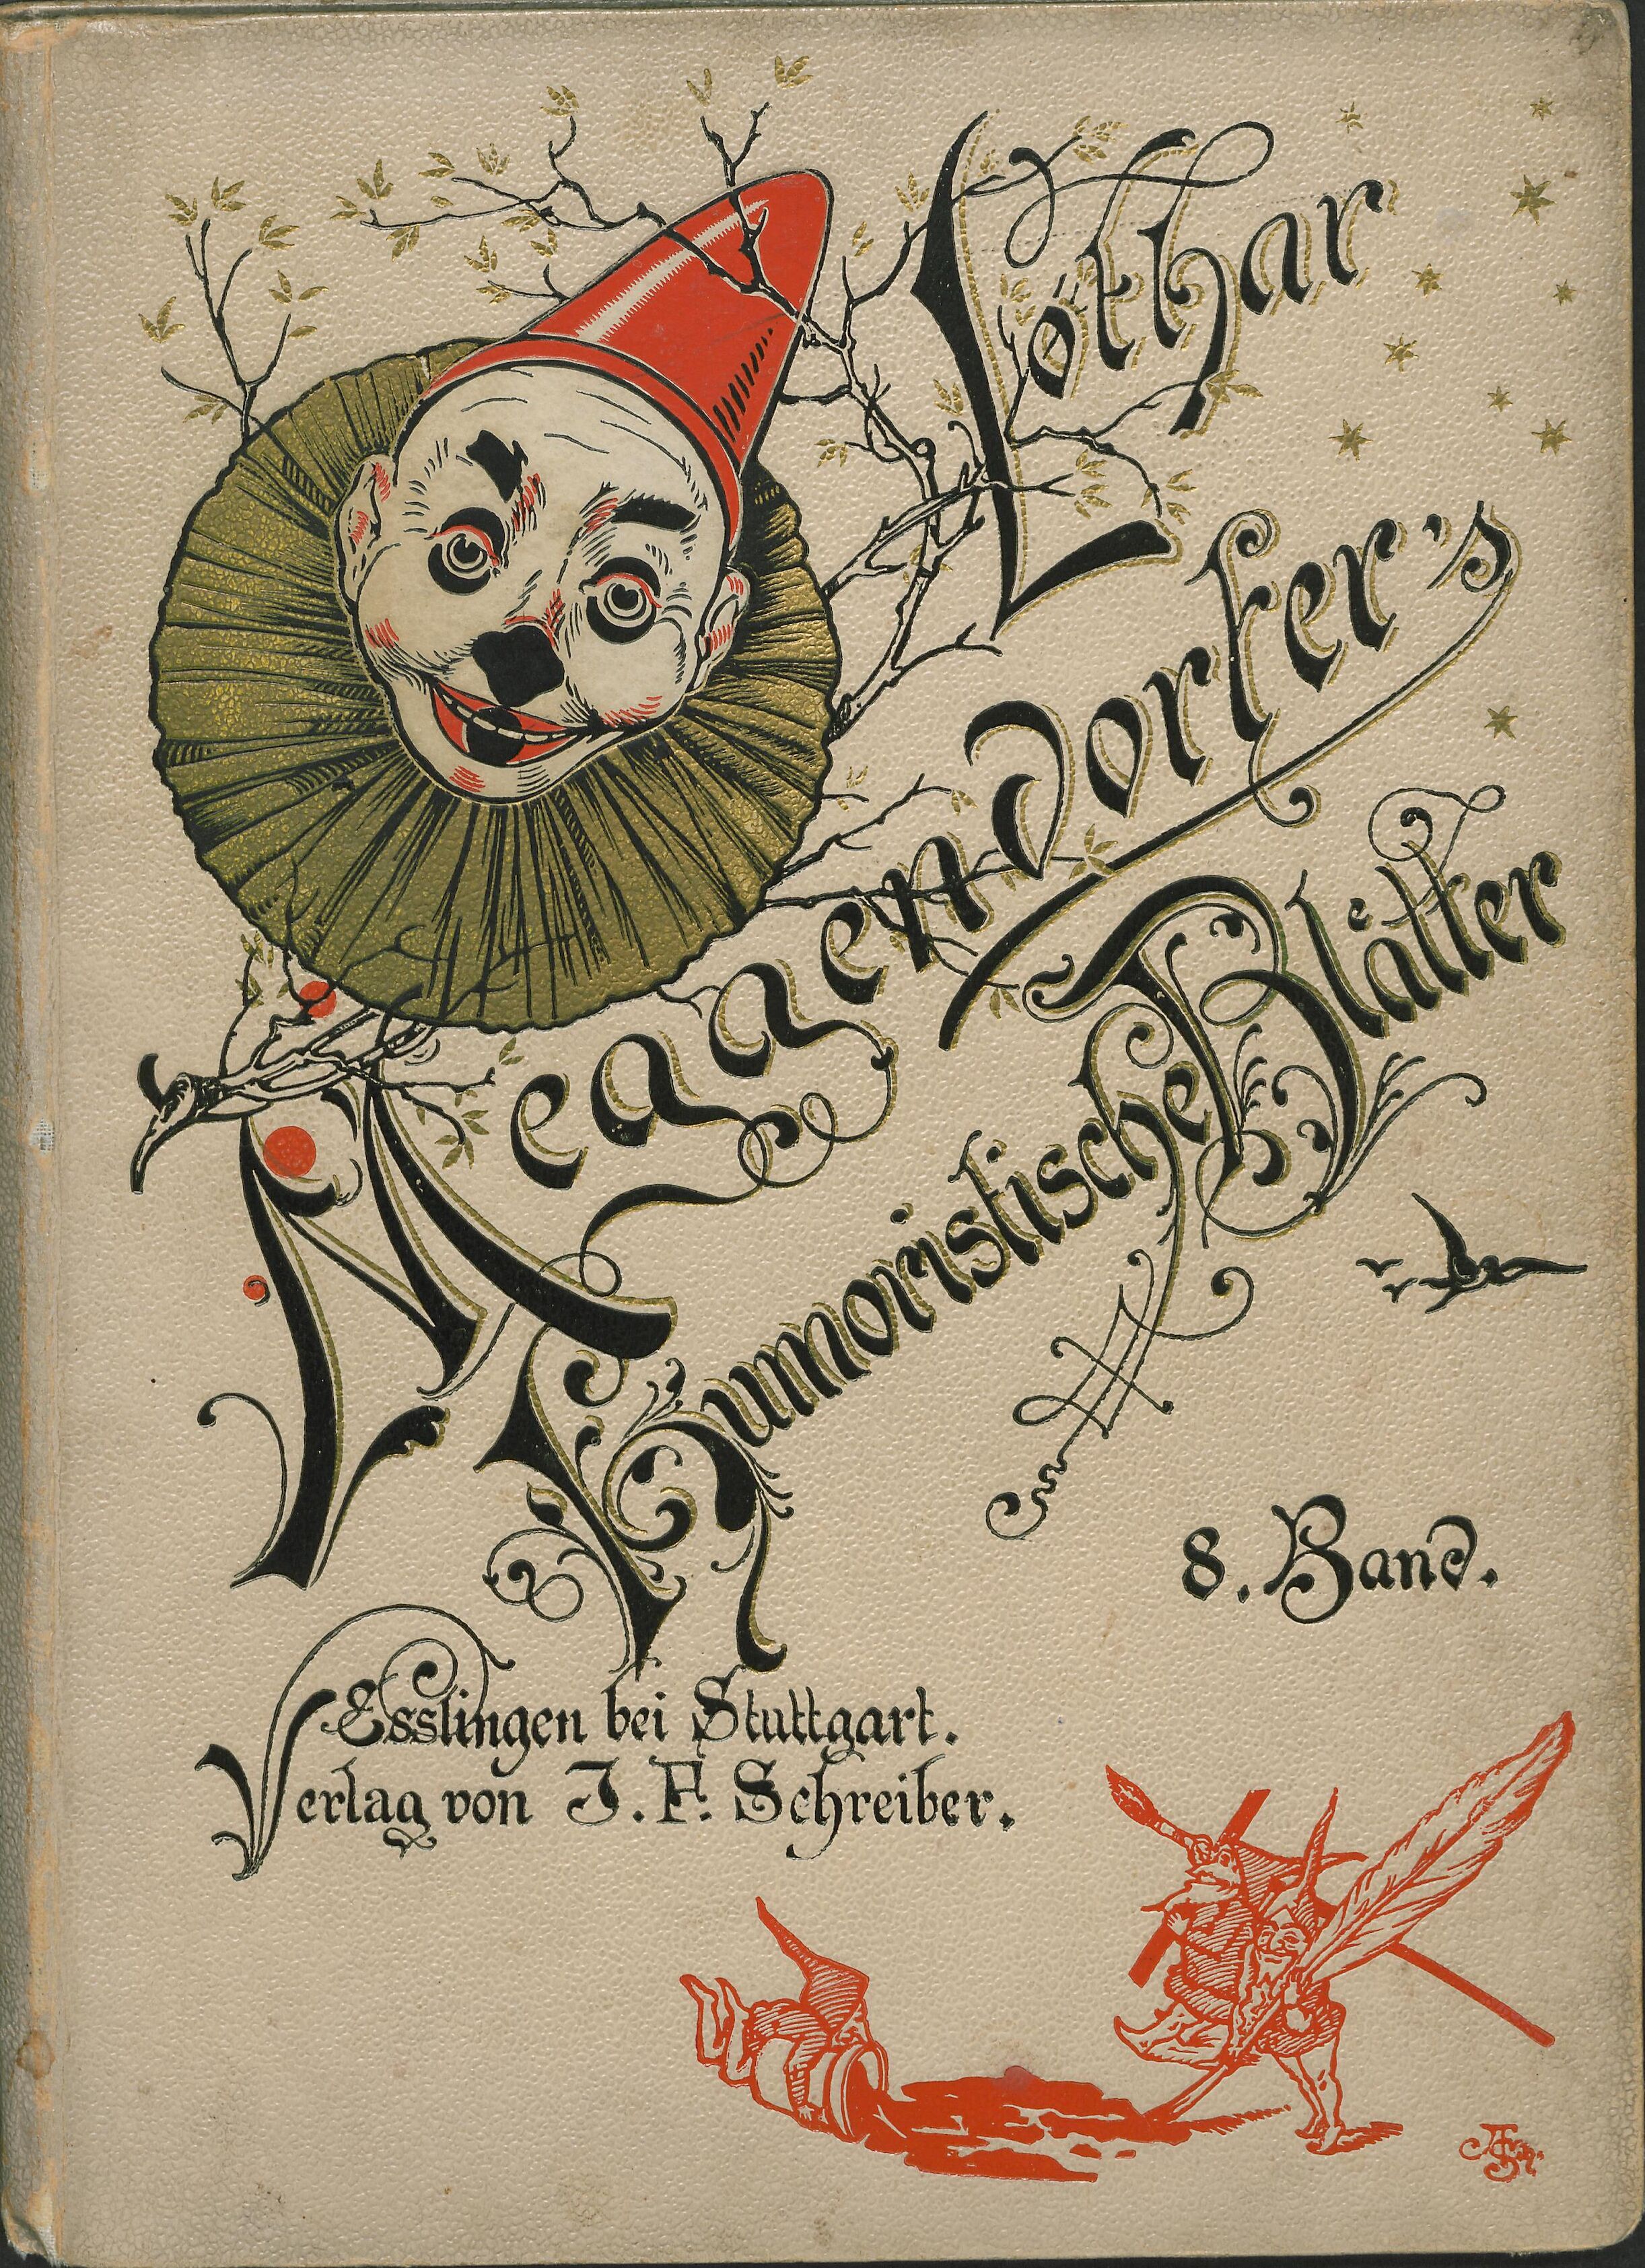 Lothar
Meggendorfer's
Humoristische Blätter
8. Band.
Esslingen bei Stuttgart.
Verlag von J. F. Schreiber.